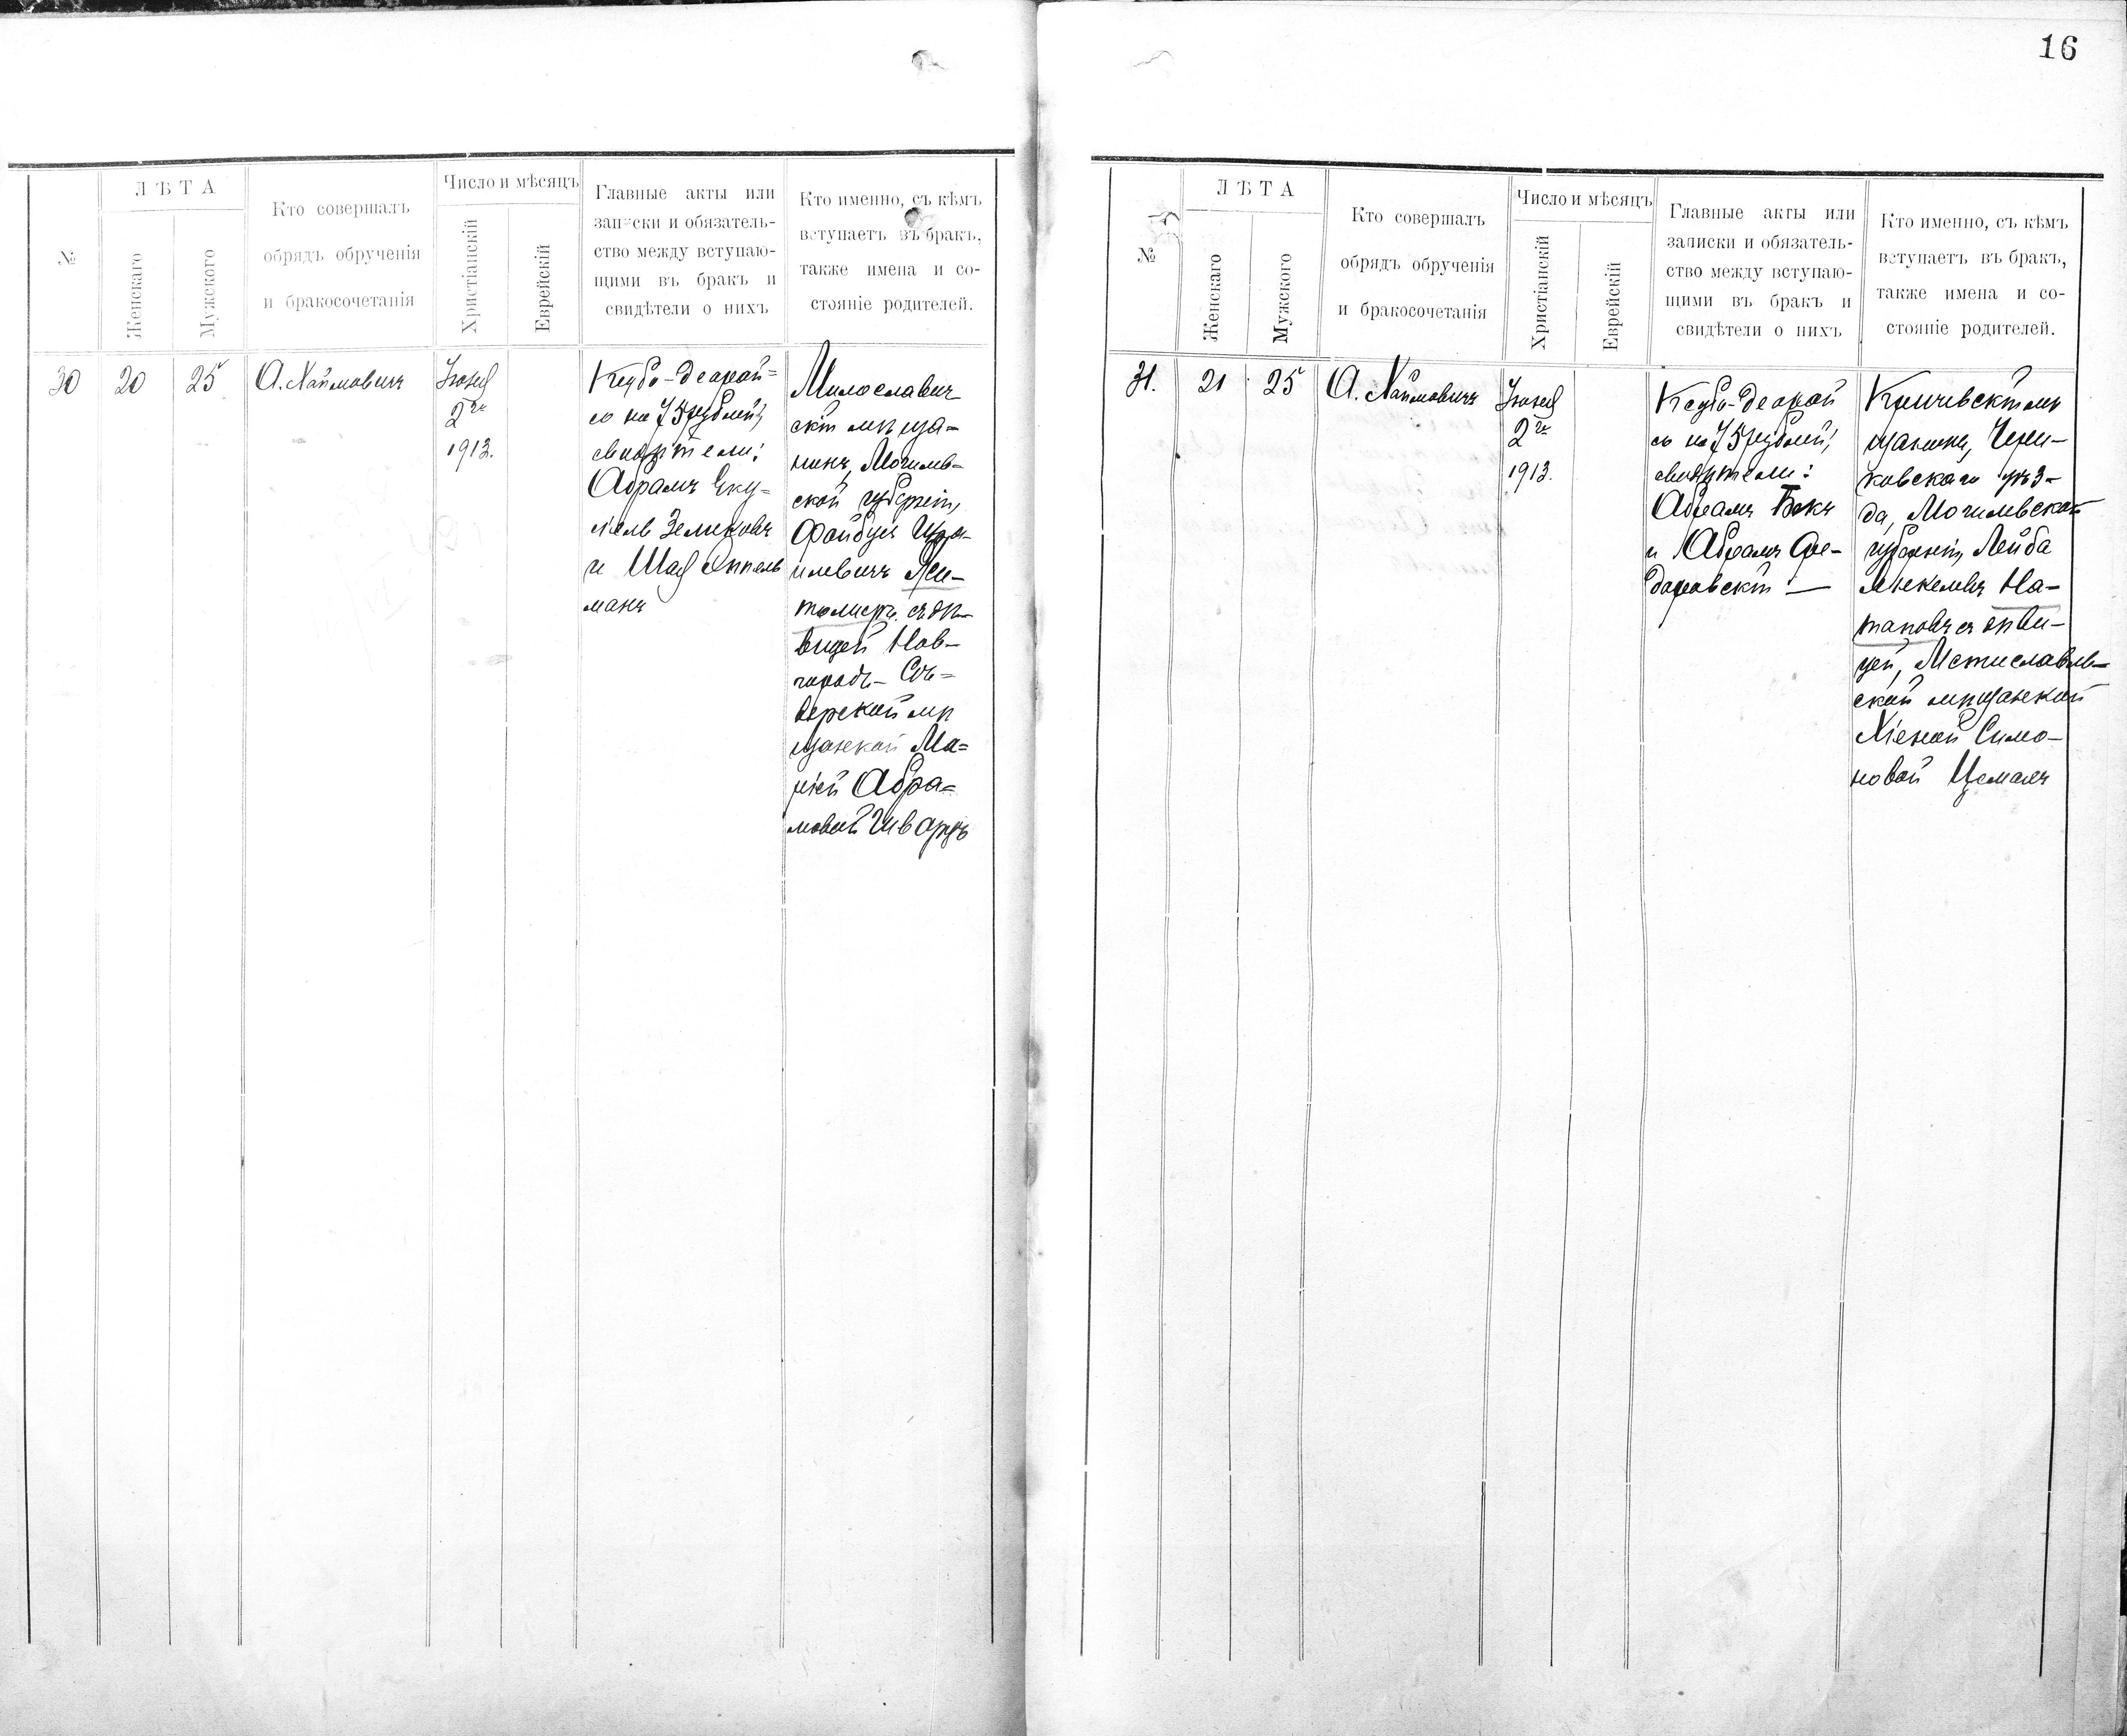 16
№
ЛѢТА
Женскаго
Мужского
Кто совершалъ
обрядъ обрученія
и бракосочетанія
Число и мѣсяцъ
Христіанскій
Еврейскій
Главные акты или
записки и обязатель-
ство между вступаю-
щими въ бракъ и
свидѣтели о нихъ
Кто именно, съ кѣмъ
вступаетъ въ бракъ,
также имена и со-
стояніе родителей.
30
20
25
А. Хаймовичъ
2го
1913.
на 75 рублей,
свидѣтели:
Абрамъ Еку-
тіель Зеликовъ
и
манъ
Милославич
скій мѣща-
нинъ, Могилев-
ской губерніи,
Файбуш Изра-
илевичъ
съ дѣ-
вицей Нов-
городъ-Сѣ-
верской мѣ
щанкой Ма=
ріей Абра=
мовой Шварцъ
№
ЛѢТА
Женскаго
Мужского
Кто совершалъ
обрядъ обрученія
и бракосочетанія
Число и мѣсяцъ
Христіанскій
Еврейскій
Главные акты или
записки и обязатель-
ство между вступаю-
щими въ бракъ и
свидѣтели о нихъ
Кто именно, съ кѣмъ
вступаетъ въ бракъ,
также имена и со-
стояніе родителей.
31.
21
25
А. Хаймовичъ
2го
1913.
на 75 рублей,
свидѣтели:
Абрамъ Бекъ
и Абрамъ
Кричевскій мѣ
щанинъ, Чери-
ковскаго уѣз-
да, Могилевской
губерніи, Лейба
На-
тановъ съ дѣви-
цей, Мстиславль-
ской мѣщанкой
Хіеной Симо-
новой